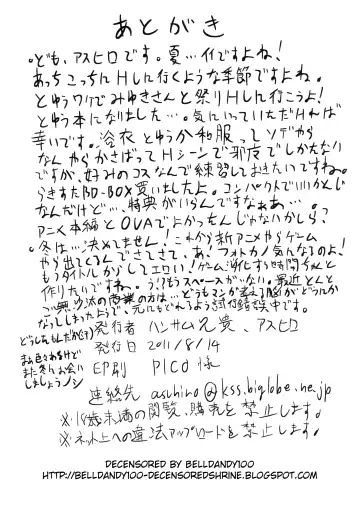 あとがき
・ども、アスヒロです。夏…イイですよね！
あっちこっちにHしに行くような季節ですよね。
とゆうワケでみゆきさんと祭りHしに行こうよ！
とゆう本になりました…。気にいっていただければ
幸いです。浴衣とゆうか和服ってソデやら
なんやらかさばってHシーンで邪魔でしかたない
ですが、好みのコスなんで練習しておきたいですね。
らきすたBD-BOX買いましたよ。コンパクトでいいかんじ
なんだけど…、特典がいらんですなぁぁ…。
アニメ本編とOVAでよかったんじゃないかしら？
・冬は…決めてません！これから新アニメやらゲーム
やら出てくるんでさてさて、あ！フォトカノ気になるのよ！
もうタイトルからしてエロい！ゲーム消化する時間ちゃんと
作りたいですね。う！？もうスペースがない。最近とんと
ご無沙汰の商業の方は…どうもマンガ考える脳がどうにか
なっしまったようで、元にもどれるよう試行錯誤中です。
どうしたもんだか(汗)
まあ色々あるけど
また冬にお会い
しましょうノシ
発行者 ハンサム兄貴、アスヒロ
発行日 2011/8/14
印刷 PICO様
連絡先 asuhiro@kss.biglobe.ne.jp
※18歳未満の閲覧、購売を禁止します。
※ネット上への違法アップロードを禁止します。
DECENSORED BY BELLDANDY100
HTTP://BELLDANDY100-DECENSOREDSHRINE.BLOGSPOT.COM/